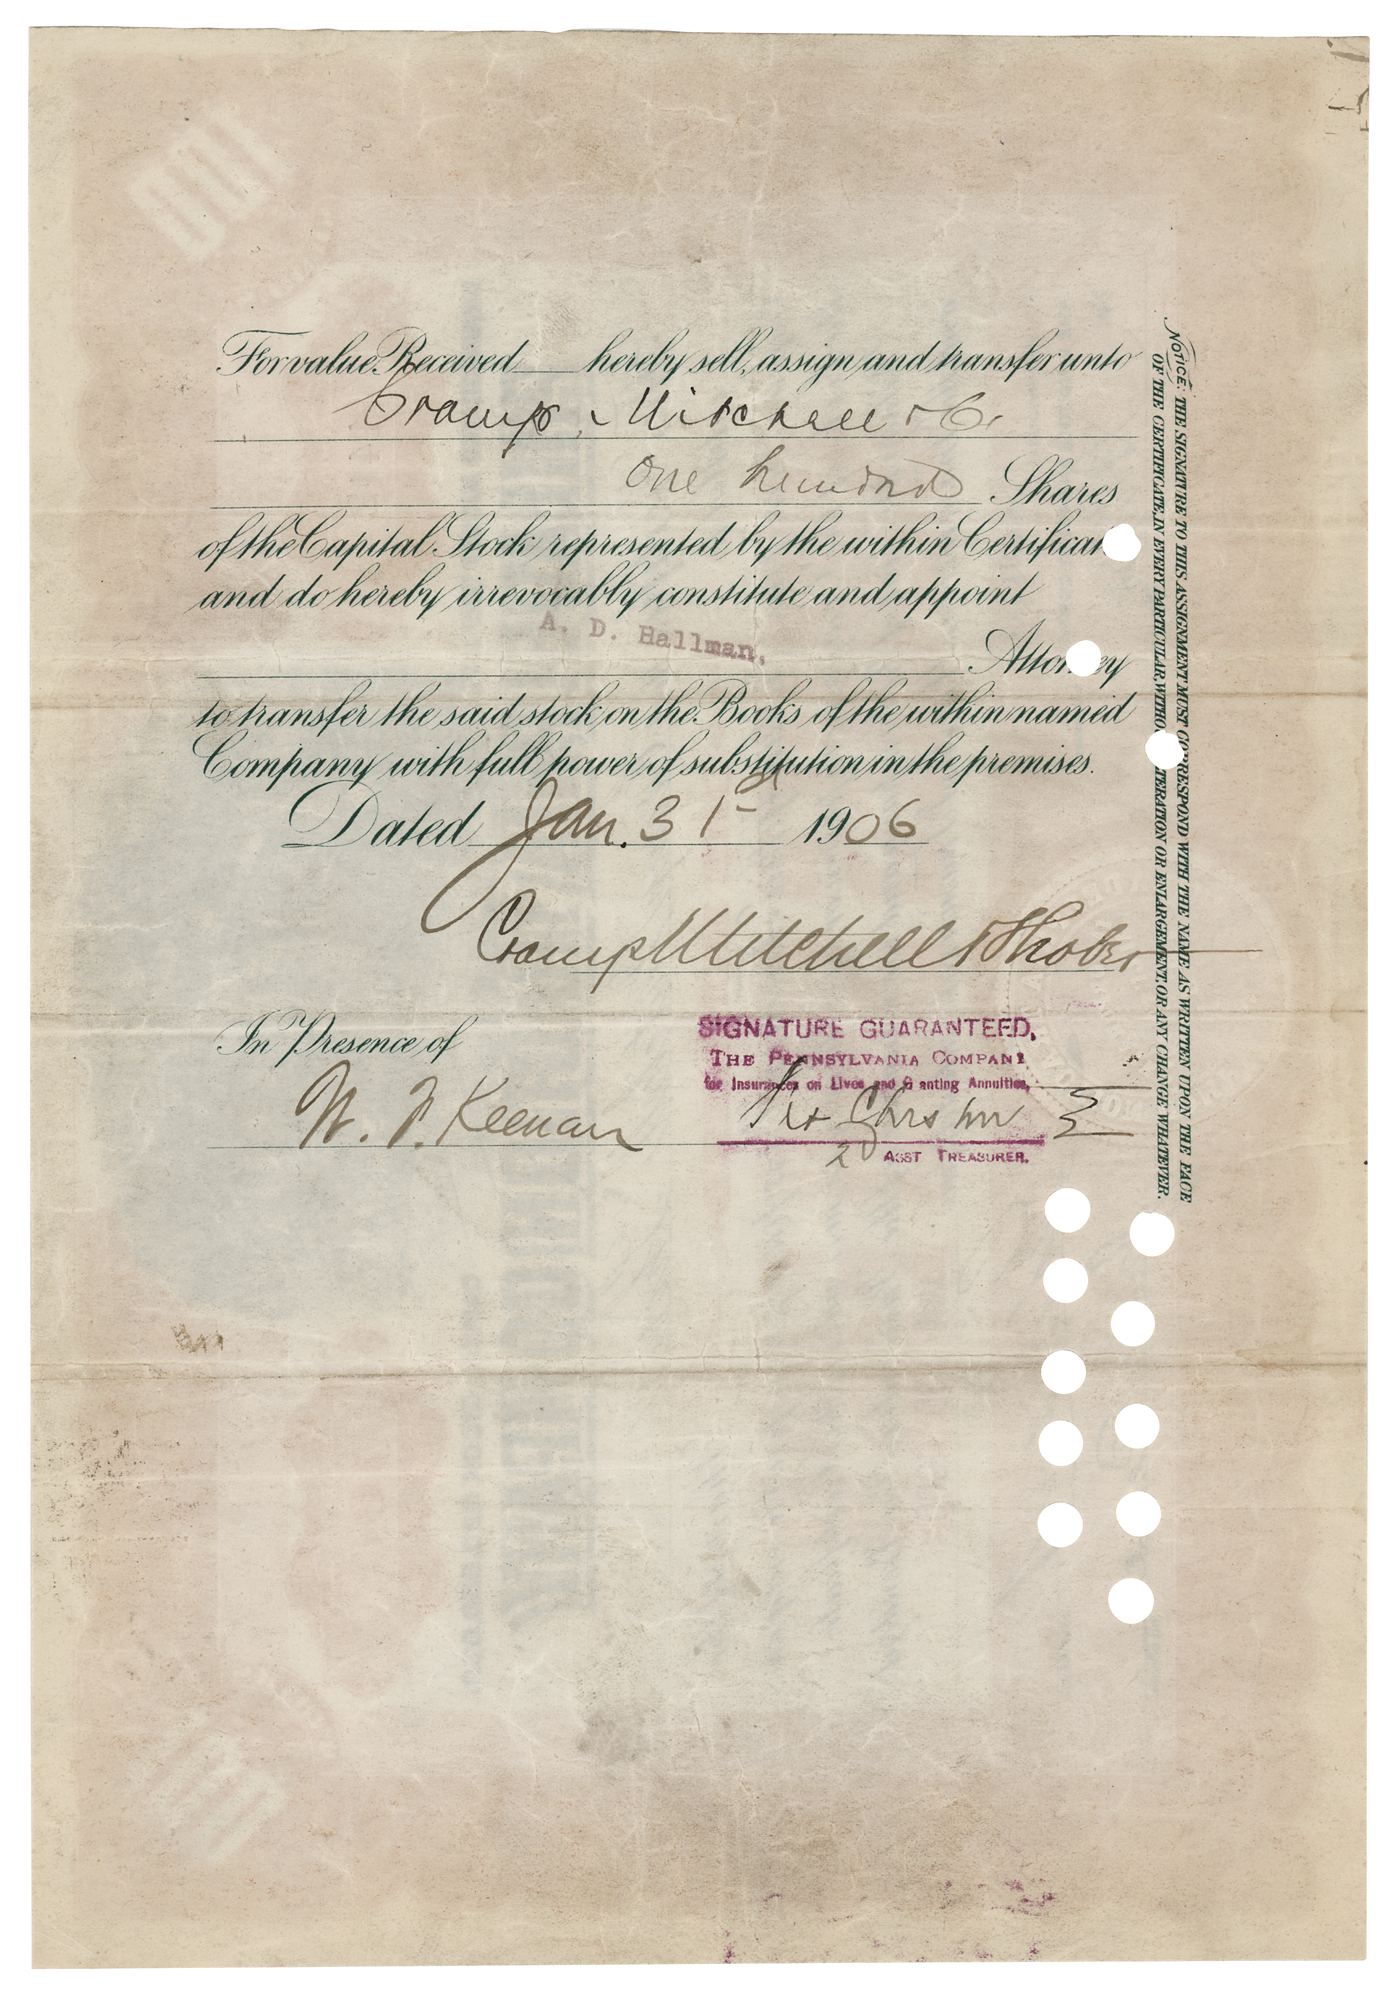 For value Received hereby sell, assign and transfer unto
Cramp, Mitchell & Co.
One hundred Shares
of the Capital Stock represented by the within Certificat
and do hereby irrevocably constitute and appoint
A. D. Hallman,
Attorney
to transfer the said stock on the Books of the within named
Company with full power of substitution in the premises.
Dated Jan. 31st 1906
Cramp Mitchell & Shober
In Presence of
W. F. Keenan
SIGNATURE GUARANTEED,
THE PENNSYLVANIA COMPANY
for Insurances on Lives and Granting Annuities,
ASST TREASURER.
NOTICE: THE SIGNATURE TO THIS ASSIGNMENT MUST CORRESPOND WITH THE NAME AS WRITTEN UPON THE FACE
OF THE CERTIFICATE, IN EVERY PARTICULAR WITHOUT ALTERATION OR ENLARGEMENT, OR ANY CHANGE WHATEVER.